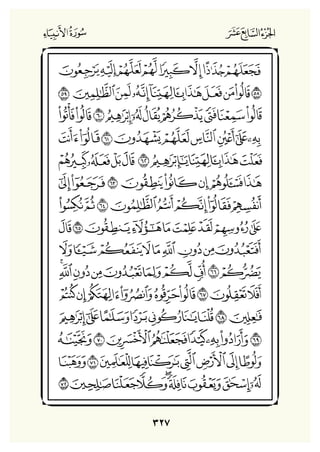 الجزء السابع عشر
سورة الأنبياء
فَجَعَلَهُمْ جُذَاذًا إِلَّا كَبِيرًا لَّهُمْ لَعَلَّهُمْ إِلَيْهِ يَرْجِعُونَ
٥٨ قَالُوا۟ مَن فَعَلَ هَـٰذَا بِـَٔالِهَتِنَآ إِنَّهُۥ لَمِنَ ٱلظَّـٰلِمِينَ ٥٩
قَالُوا۟ سَمِعْنَا فَتًى يَذْكُرُهُمْ يُقَالُ لَهُۥٓ إِبْرَٰهِيمُ ٦٠ قَالُوا۟ فَأْتُوا۟
بِهِۦ عَلَىٰٓ أَعْيُنِ ٱلنَّاسِ لَعَلَّهُمْ يَشْهَدُونَ ٦١ قَالُوٓا۟ ءَأَنتَ
فَعَلْتَ هَـٰذَا بِـَٔالِهَتِنَا يَـٰٓإِبْرَٰهِيمُ ٦٢ قَالَ بَلْ فَعَلَهُۥ كَبِيرُهُمْ
هَـٰذَا فَسْـَٔلُوهُمْ إِن كَانُوا۟ يَنطِقُونَ ٦٣ فَرَجَعُوٓا۟ إِلَىٰٓ
أَنفُسِهِمْ فَقَالُوٓا۟ إِنَّكُمْ أَنتُمُ ٱلظَّـٰلِمُونَ ٦٤ ثُمَّ نُكِسُوا۟
عَلَىٰ رُءُوسِهِمْ لَقَدْ عَلِمْتَ مَا هَـٰٓؤُلَآءِ يَنطِقُونَ ٦٥ قَالَ
أَفَتَعْبُدُونَ مِن دُونِ ٱللَّهِ مَا لَا يَنفَعُكُمْ شَيْـًٔا وَلَا
يَضُرُّكُمْ ٦٦ أُفٍّ لَّكُمْ وَلِمَا تَعْبُدُونَ مِن دُونِ ٱللَّهِ
أَفَلَا تَعْقِلُونَ ٦٧ قَالُوا۟ حَرِّقُوهُ وَٱنصُرُوٓا۟ ءَالِهَتَكُمْ إِن كُنتُمْ
فَـٰعِلِينَ ٦٨ قُلْنَا يَـٰنَارُ كُونِى بَرْدًا وَسَلَـٰمًا عَلَىٰٓ إِبْرَٰهِيمَ
٦٩ وَأَرَادُوا۟ بِهِۦ كَيْدًا فَجَعَلْنَـٰهُمُ ٱلْأَخْسَرِينَ ٧٠ وَنَجَّيْنَـٰهُ
وَلُوطًا إِلَى ٱلْأَرْضِ ٱلَّتِى بَـٰرَكْنَا فِيهَا لِلْعَـٰلَمِينَ ٧١ وَوَهَبْنَا
لَهُۥٓ إِسْحَـٰقَ وَيَعْقُوبَ نَافِلَةً وَكُلًّا جَعَلْنَا صَـٰلِحِينَ ٧٢
٣٢٧